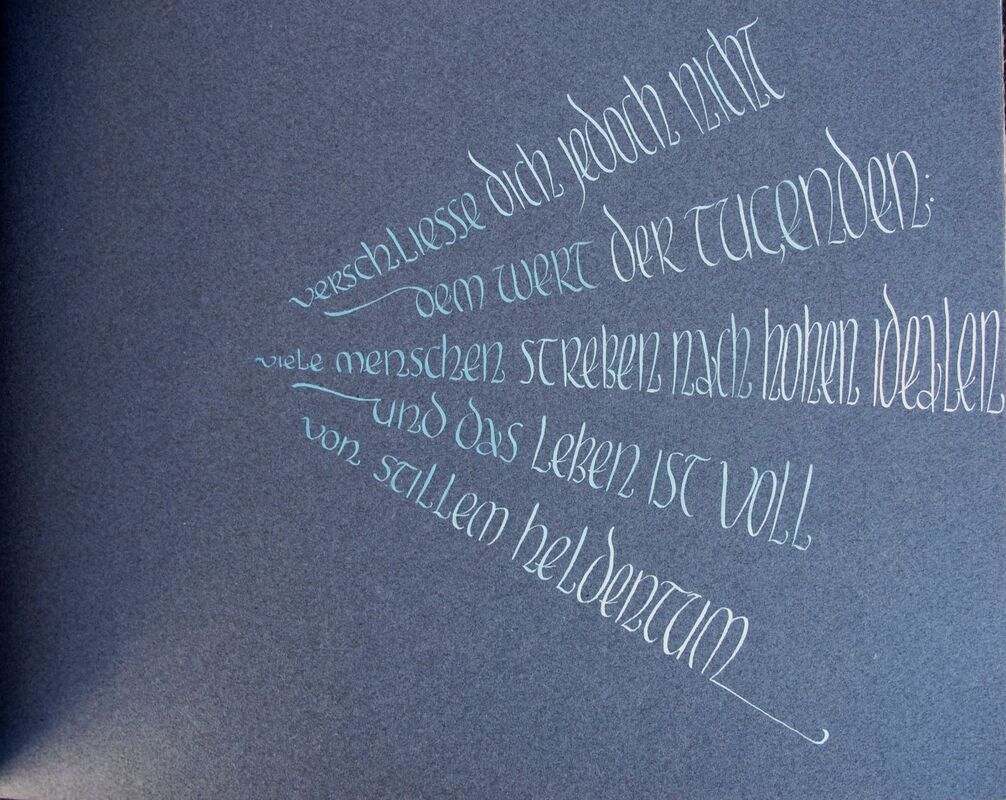 verschliesse dich jedoch nicht
dem wert der tugenden:
viele menschen streben nach hohen idealen
und das leben ist voll
von stillem heldentum